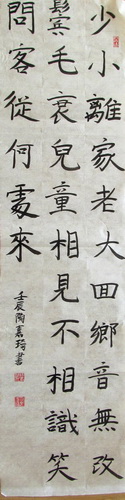 少小離家老大回鄉音無改
鬢毛衰兒童相見不相識笑
問客從何處來
壬辰陶喜琦書